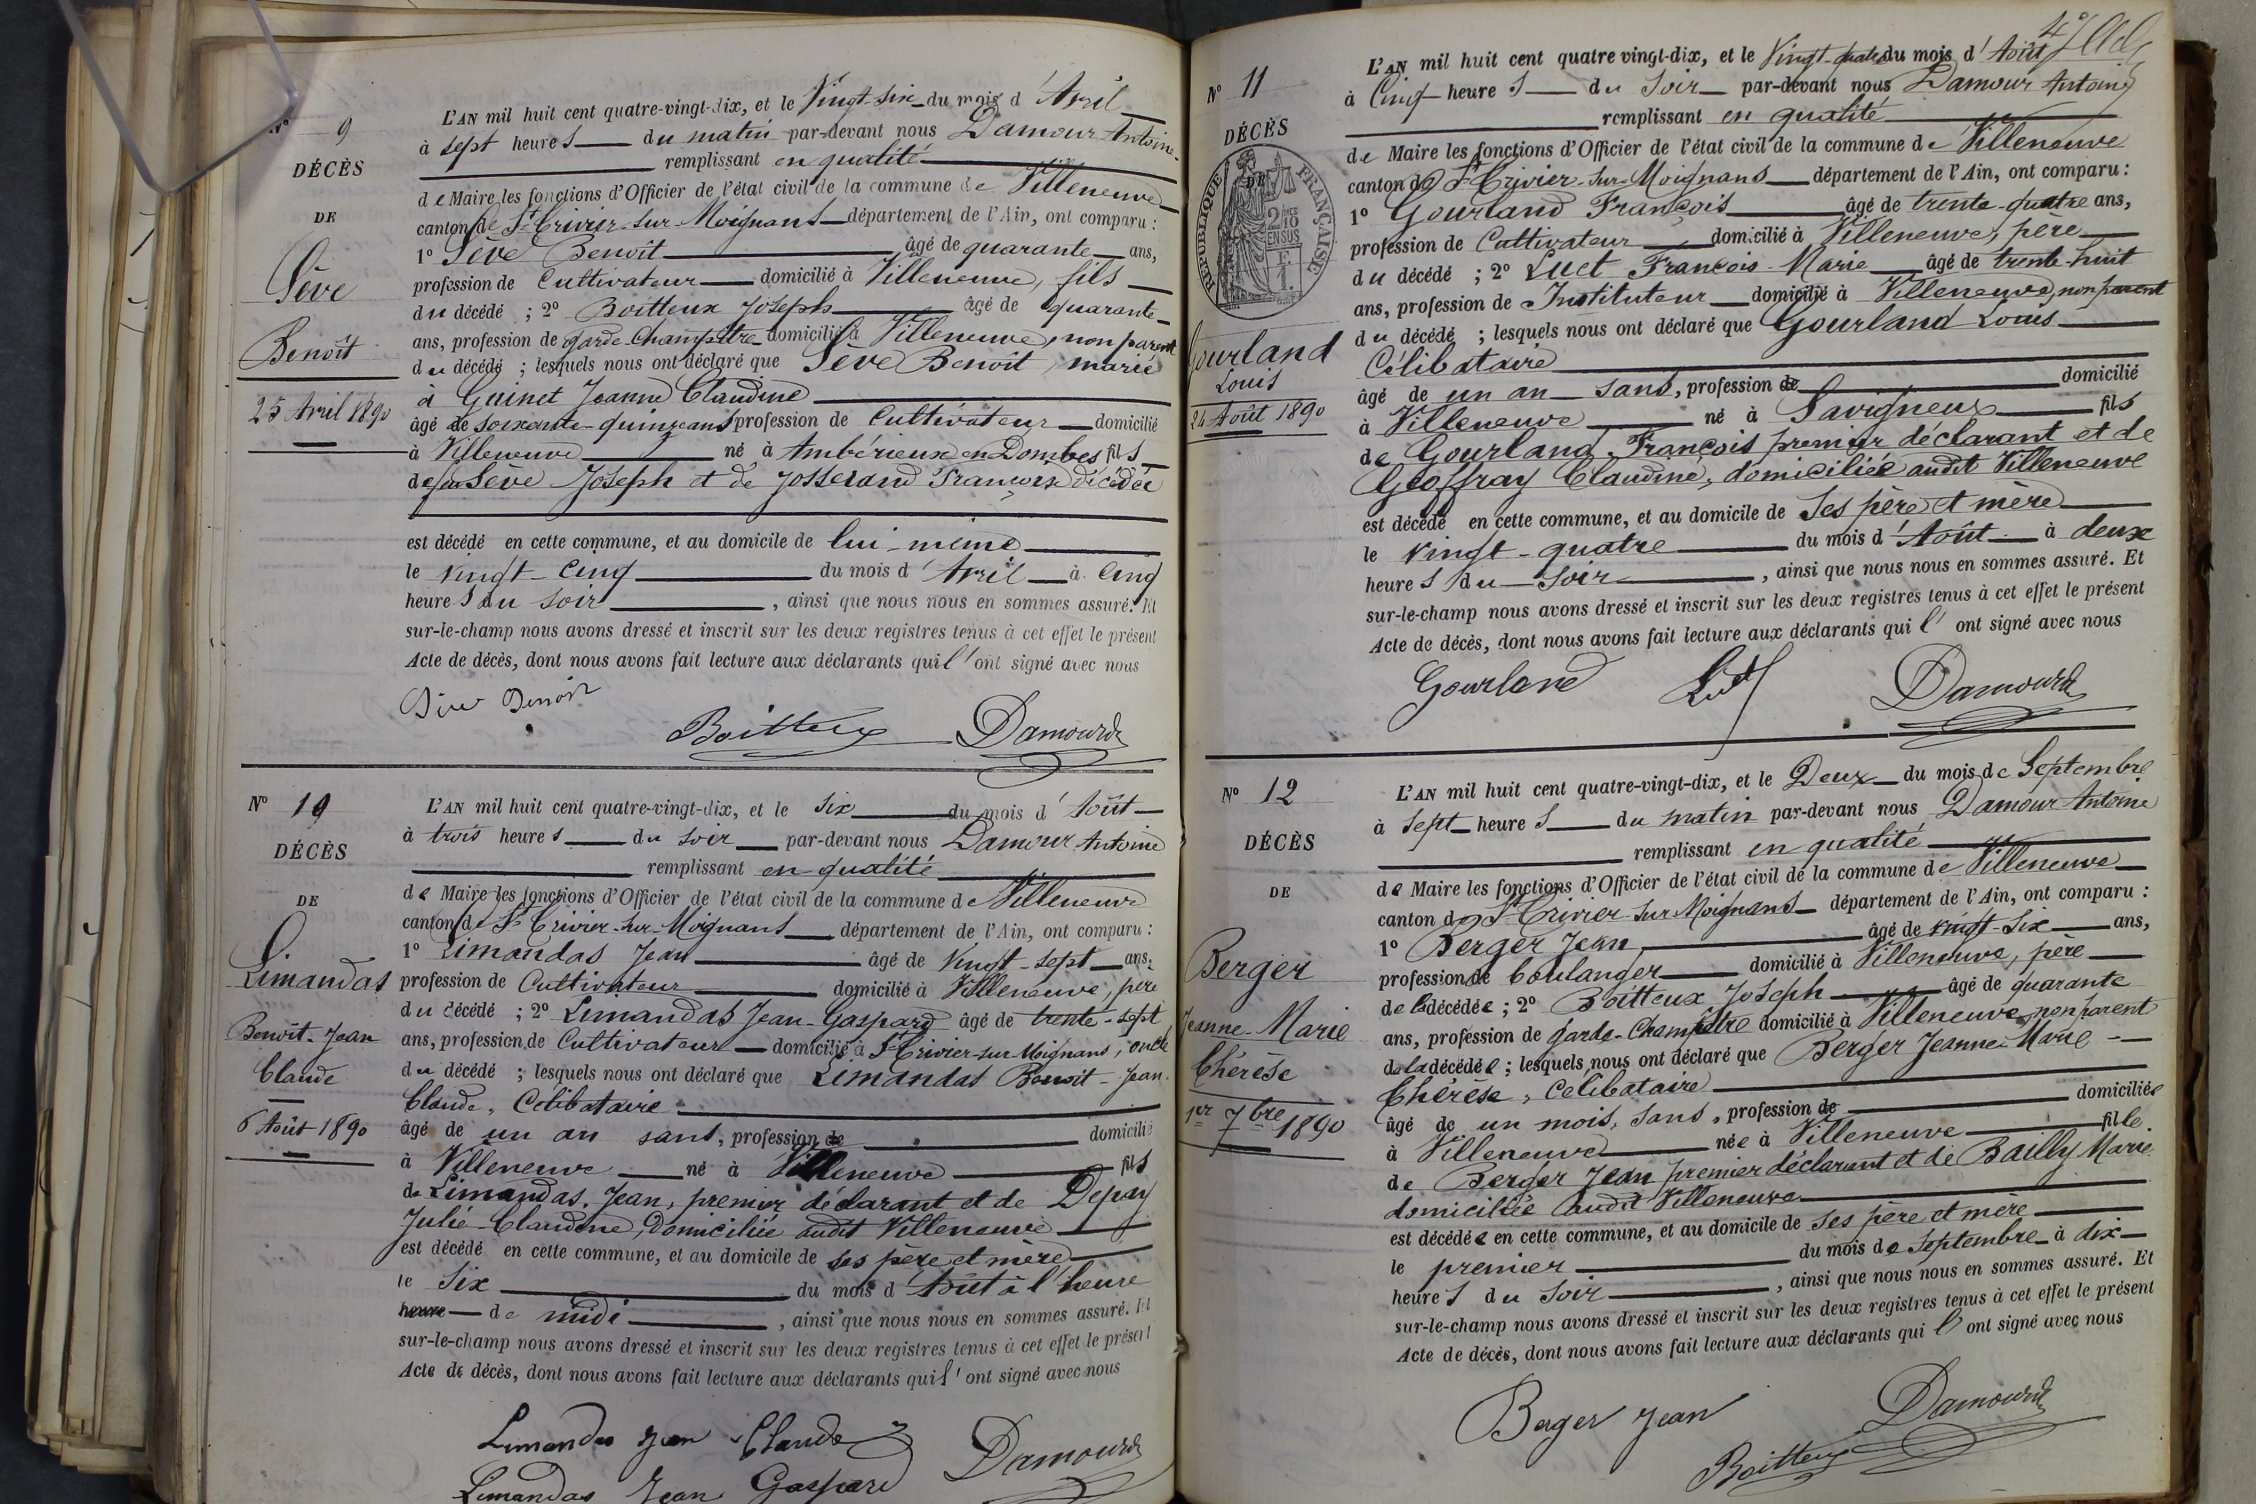 N° 9
DÉCÈS
DE
Sève
Benoît
25 Avril 1890
L'AN mil huit cent quatre-vingt-dix, et le Vingt-six du mois d'Avril
à sept heures du matin par-devant nous Damour Antoine
remplissant en qualité
de Maire les fonctions d'Officier de l'état civil de la commune de Villeneuve
canton de St Trivier-sur-Moignans département de l'Ain, ont comparu :
1° Sève Benoît âgé de quarante ans,
profession de Cultivateur domicilié à Villeneuve, fils
du décédé ; 2° Boitteux Joseph âgé de quarante
ans, profession de garde-Champêtre domicilié à Villeneuve, non parent
du décédé ; lesquels nous ont déclaré que Sève Benoît, marié
à Guinet Jeanne Claudine
âgé de soixante-quinze ans profession de Cultivateur domicilié
à Villeneuve né à Ambérieux en Dombes fils
de feu Sève Joseph et de Josserand Françoise décédée
est décédé en cette commune, et au domicile de lui-même
le vingt-cinq du mois d'Avril à cinq
heures du soir, ainsi que nous nous en sommes assuré. Et
sur-le-champ nous avons dressé et inscrit sur les deux registres tenus à cet effet le présent
Acte de décès, dont nous avons fait lecture aux déclarants qui l'ont signé avec nous
Sève Benoit
Boitteux Damour
N° 10
DÉCÈS
DE
Limandas
Benoît-Jean
Claude
6 Août 1890
L'AN mil huit cent quatre-vingt-dix, et le six du mois d'Août
à trois heures du soir par-devant nous Damour Antoine
remplissant en qualité
de Maire les fonctions d'Officier de l'état civil de la commune de Villeneuve
canton de St Trivier-sur-Moignans département de l'Ain, ont comparu :
1° Limandas Jean âgé de Vingt-sept ans,
profession de Cultivateur domicilié à Villeneuve, père
du décédé ; 2° Limandas Jean-Gaspard âgé de trente-sept
ans, profession de Cultivateur domicilié à St Trivier-sur-Moignans, oncle
du décédé ; lesquels nous ont déclaré que Limandas Benoit-Jean
Claude, Célibataire
âgé de un an sans, profession de domicilié
à Villeneuve né à Villeneuve fils
de Limandas Jean, premier déclarant et de Depay
Julie-Claudine, domiciliée audit Villeneuve
est décédé en cette commune, et au domicile de ses père et mère
le six du mois d'Août à l'heure
heure de midi, ainsi que nous nous en sommes assuré. Et
sur-le-champ nous avons dressé et inscrit sur les deux registres tenus à cet effet le présent
Acte de décès, dont nous avons fait lecture aux déclarants qui l'ont signé avec nous
Limandas Jean Claude Damour
Limandas Jean Gaspard
N° 11
DÉCÈS
DE
RÉPUBLIQUE FRANÇAISE
2/10 EN SUS
Gourland
Louis
24 Août 1890
L'AN mil huit cent quatre vingt-dix, et le Vingt-quatre du mois d'Août
à Cinq heures du soir par-devant nous Damour Antoine
remplissant en qualité
de Maire les fonctions d'Officier de l'état civil de la commune de Villeneuve
canton de St Trivier-sur-Moignans département de l'Ain, ont comparu :
1° Gourland François âgé de trente-quatre ans,
profession de Cultivateur domicilié à Villeneuve, père
du décédé ; 2° Luct François-Marie âgé de trente-huit
ans, profession de Instituteur domicilié à Villeneuve, non parent
du décédé ; lesquels nous ont déclaré que Gourland Louis
Célibataire
âgé de un an sans, profession de domicilié
à Villeneuve né à Savigneux fils
de Gourland, François premier déclarant et de
Geoffray Claudine, domiciliée audit Villeneuve
est décédé en cette commune, et au domicile de ses père et mère
le vingt-quatre du mois d'Août à deux
heures du soir, ainsi que nous nous en sommes assuré. Et
sur-le-champ nous avons dressé et inscrit sur les deux registres tenus à cet effet le présent
Acte de décès, dont nous avons fait lecture aux déclarants qui l'ont signé avec nous
Gourland Luct Damour
N° 12
DÉCÈS
DE
Berger
Jeanne-Marie
Thérèse
1er 7bre 1890
L'AN mil huit cent quatre-vingt-dix, et le Deux du mois de Septembre
à sept heures du matin par-devant nous Damour Antoine
remplissant en qualité
de Maire les fonctions d'Officier de l'état civil de la commune de Villeneuve
canton de St Trivier-sur-Moignans département de l'Ain, ont comparu :
1° Berger Jean, âgé de vingt-six ans,
profession de boulanger domicilié à Villeneuve, père
de la décédée ; 2° Boitteux Joseph âgé de quarante
ans, profession de garde-Champêtre domicilié à Villeneuve, non parent
de la décédée ; lesquels nous ont déclaré que Berger Jeanne-Marie
Thérèse, Célibataire
âgé de un mois, sans, profession de domiciliée
à Villeneuve née à Villeneuve fille
de Berger Jean premier déclarant et de Bailly Marie
domiciliée audit Villeneuve
est décédée en cette commune, et au domicile de ses père et mère
le premier du mois de Septembre à dix
heures du soir, ainsi que nous nous en sommes assuré. Et
sur-le-champ nous avons dressé et inscrit sur les deux registres tenus à cet effet le présent
Acte de décès, dont nous avons fait lecture aux déclarants qui l'ont signé avec nous
Berger Jean Damour
Boitteux